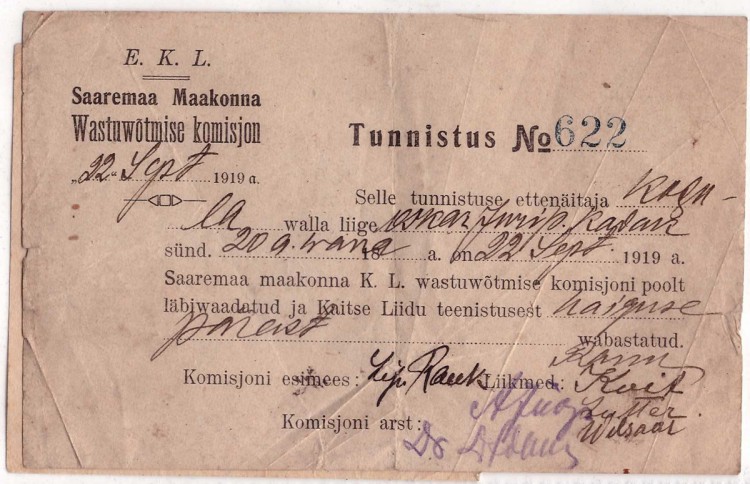 E. K. L.
Saaremaa Maakonna
Wastuwõtmise komisjon
"22" Sept 1919 a.
Tunnistus No 622
Selle tunnistuse ettenäitaja
la walla liige Oskar Jurip. Kadar
sünd. 20 a. wana 18 a. on 22 Sept 1919 a.
Saaremaa maakonna K. L. wastuwõtmise komisjoni poolt
läbiwaadatud ja Kaitse Liidu teenistusest haiguse
pärast wabastatud.
Komisjoni esimees: Liikmed:
Komisjoni arst: Dr